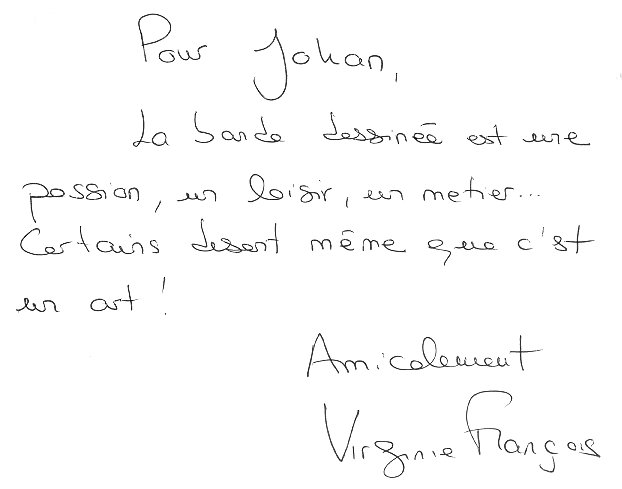 Pour Johan,
La bande dessinée est une
passion, un loisir, un metier...
Certains disent même que c'est
un art !
Amicalement
Virginie François